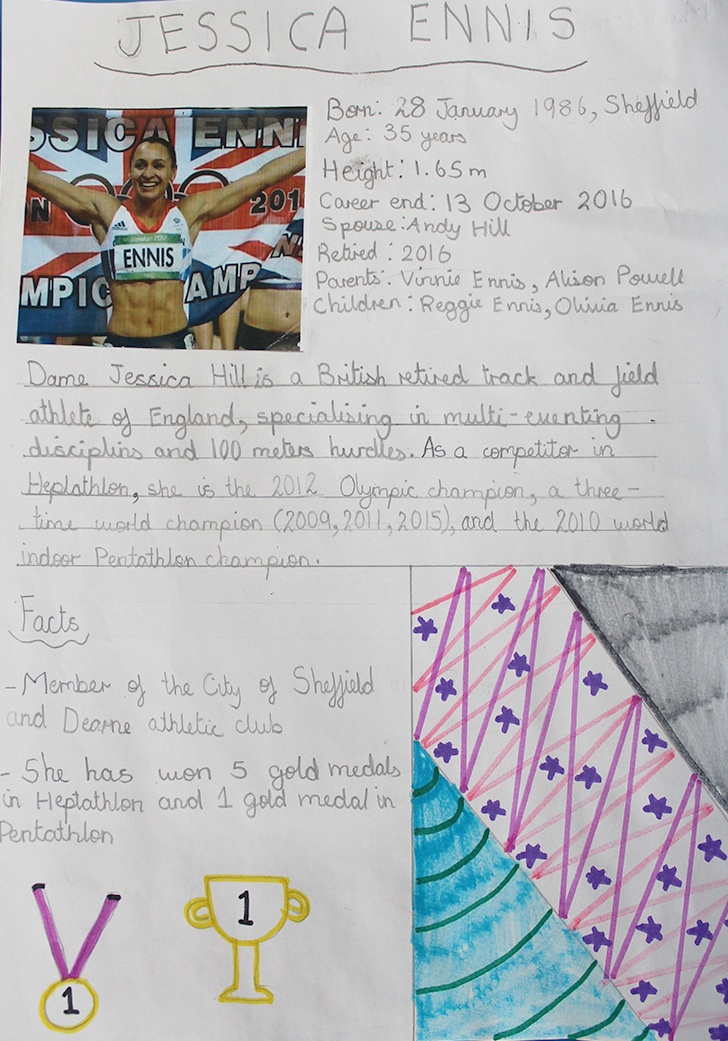 JESSICA ENNIS
SSICA ENNI
N
201
London 2012
ENNIS
MPIC
AMP
Born: 28 January 1986, Sheffield
Age: 35 years
Height: 1.65m
Career end: 13 October 2016
Spouse: Andy Hill
Retired: 2016
Parents: Vinnie Ennis, Alison Powell
Children: Reggie Ennis, Olivia Ennis
Dame Jessica Hill is a British retired track and field
athlete of England, specialising in multi-eventing
disciplins and 100 meters hurdles. As a competitor in
Heplathlon, she is the 2012 Olympic champion, a three-
time world champion (2009, 2011, 2015), and the 2010 world
indoor Pentathlon champion.
Facts
- Member of the City of Sheffield
and Dearne athletic club
- She has won 5 gold medals
in Heptathlon and 1 gold medal in
Pentathlon
1
1